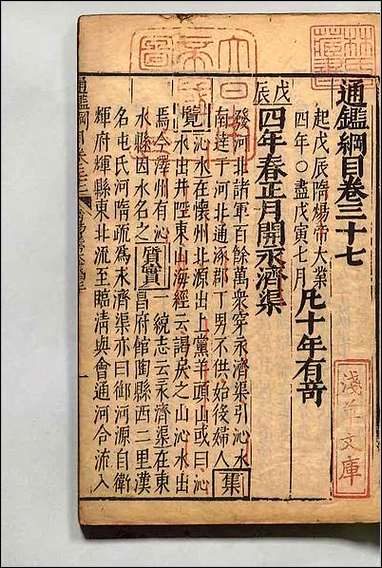 通鑑綱目卷三十七
起戊辰隋煬帝大業
四年○盡戊寅七月
凡十年有奇
戊辰
四年春正月開永濟渠
發河北諸軍百餘萬衆穿永濟渠引沁水
南達于河北通涿郡丁男不供始役婦人
集
覽
沁水在懷州北源出上黨羊頭山或曰沁
水出井陘東山海經云謁戾之山沁水出
焉今澤州有沁
水縣因水爲名
質實
一統志云永濟渠在東
昌府館陶縣西二里漢
名屯氏河隋疏爲永濟渠亦曰御河源自衛
輝府輝縣東北流至臨清與會通河合流入
淺草文庫